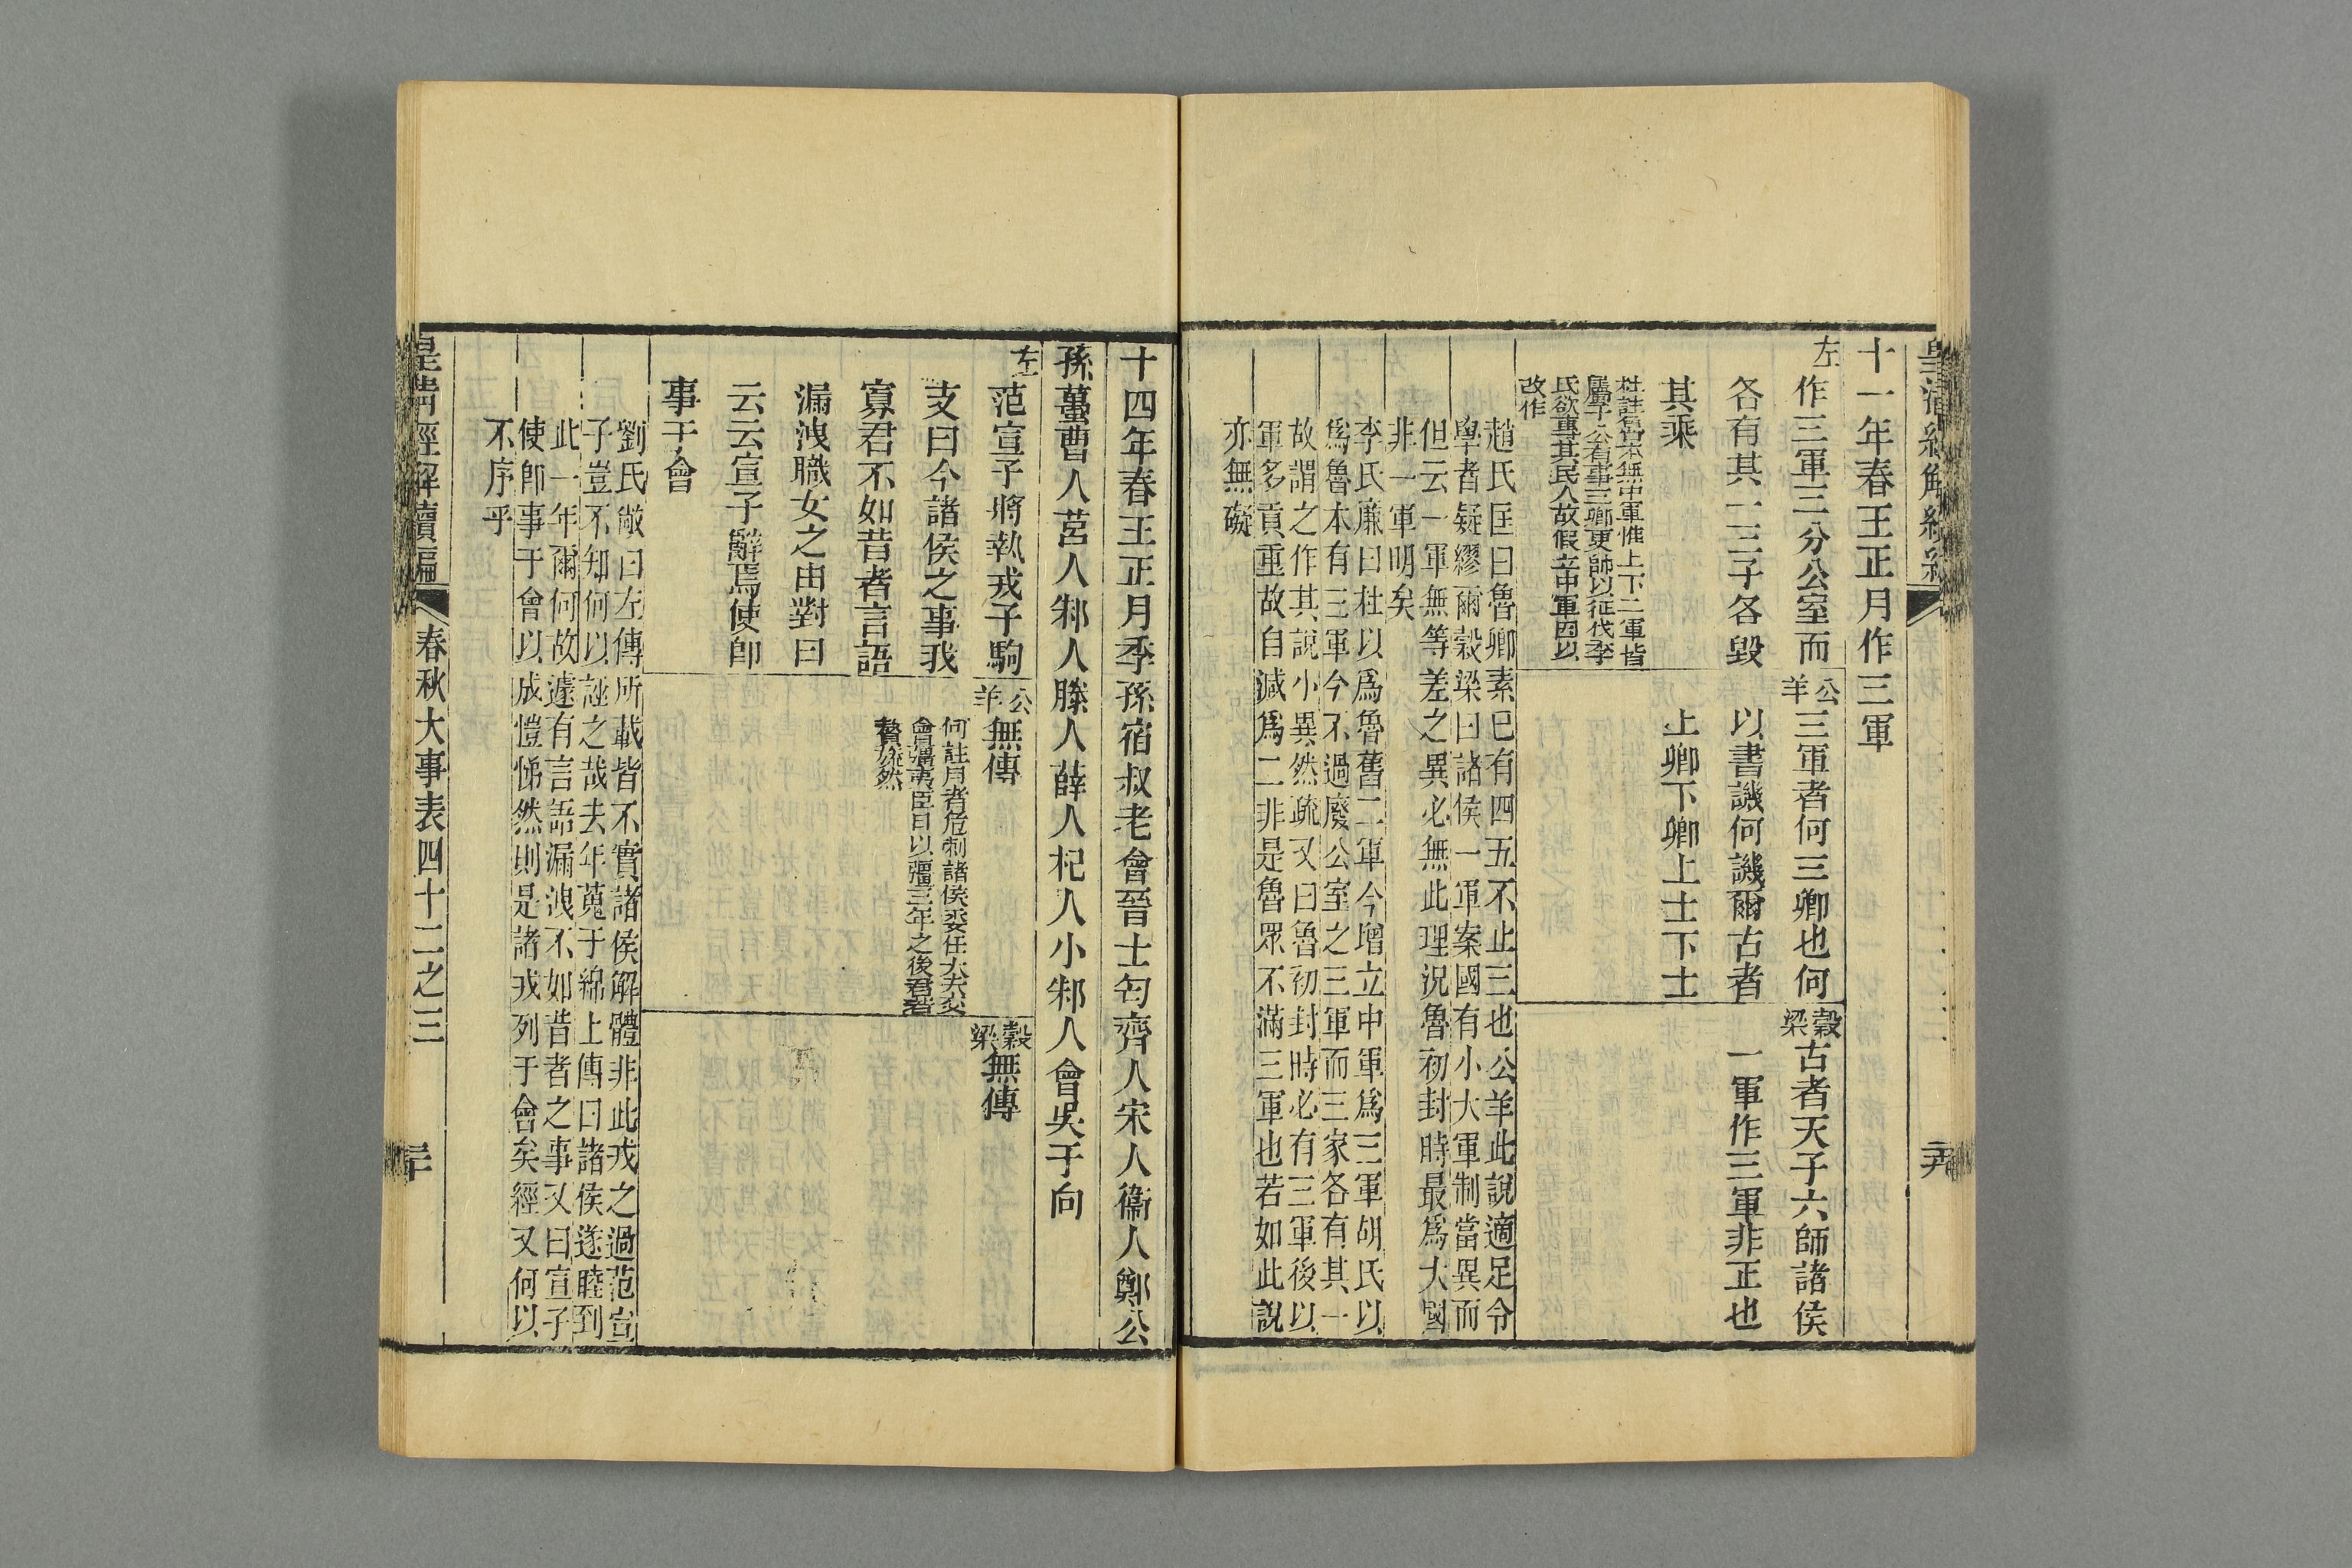 十一年春王正月作三軍
左
作三軍三分公室而
各有其一三子各毀
其乘
杜註魯本無中軍惟上下二軍皆
屬于公有事三卿更師以征伐季
氏欲專其民人故假立中軍因以
改作
公羊
三軍者何三卿也何
以書譏何譏爾古者
上卿下卿上士下士
穀梁
古者天子六師諸侯
一軍作三軍非正也
趙氏匡曰魯卿素已有四五不止三也公羊此說適足令
學者疑繆爾穀梁曰諸侯一軍案國有小大軍制當異而
但云一軍無等差之異必無此理況魯初封時最爲大國
非一軍明矣
李氏廉曰杜以爲魯舊二軍今增立中軍爲三軍胡氏以
爲魯本有三軍今不過廢公室之三軍而三家各有其一
故謂之作其說小異然疏又曰魯初封時必有三軍後以
軍多貢重故自減爲二非是魯眾不滿三軍也若如此說
亦無礙
十四年春王正月季孫宿叔老會晉士匄齊人宋人衞人鄭公
孫蠆曹人莒人邾人滕人薛人杞人小邾人會吳于向
左
范宣子將執戎子駒
支曰今諸侯之事我
寡君不如昔者言語
漏洩職女之由對曰
云云宣子辭焉使卽
事于會
公羊
無傳
何註月者危刺諸侯委任大夫交
會彊夷臣日以彊三年之後君若
贅旒然
穀梁
無傳
劉氏敞曰左傳所載皆不實諸侯解體非此戎之過范宣
子豈不知何以誣之哉去年蒐于綿上傳曰諸侯遂睦到
此一年爾何故遽有言語漏洩不如昔者之事又曰宣子
使卽事于會以成愷悌然則是諸戎列于會矣經又何以
不序乎
皇清經解續編
春秋大事表四十二之三